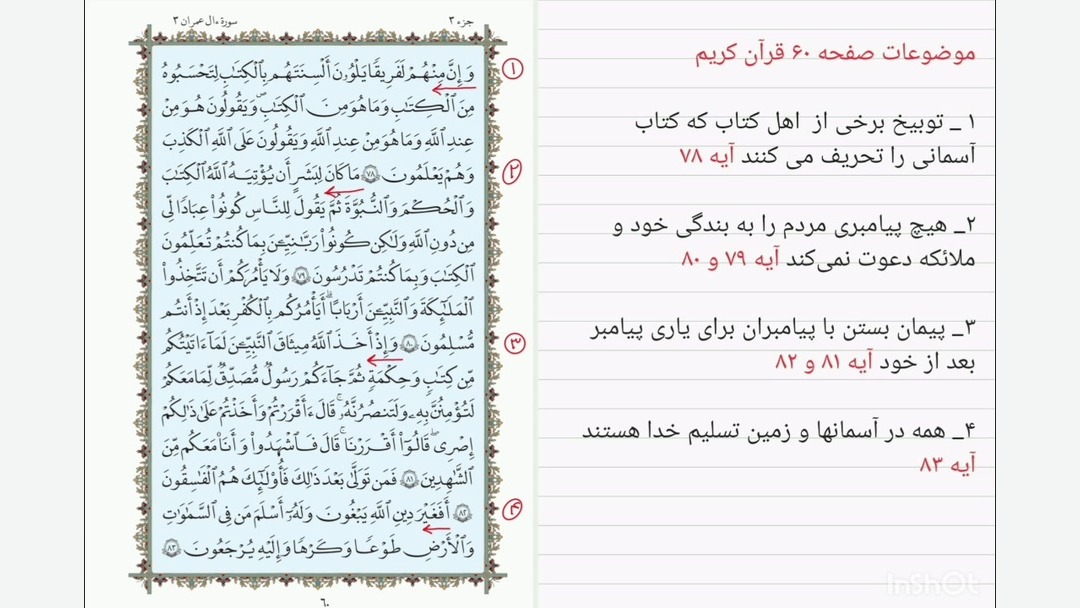 سورة ءال عمران ٣
جزء ٣
وَإِنَّ مِنْهُمْ لَفَرِيقًا يَلْوُۥنَ أَلْسِنَتَهُم بِالْكِتَٰبِ لِتَحْسَبُوهُ
مِنَ الْكِتَٰبِ وَمَا هُوَ مِنَ الْكِتَٰبِ وَيَقُولُونَ هُوَ مِنْ
عِندِ اللَّهِ وَمَا هُوَ مِنْ عِندِ اللَّهِ وَيَقُولُونَ عَلَى اللَّهِ الْكَذِبَ
وَهُمْ يَعْلَمُونَ ٧٨ مَا كَانَ لِبَشَرٍ أَن يُؤْتِيَهُ اللَّهُ الْكِتَٰبَ
وَالْحُكْمَ وَالنُّبُوَّةَ ثُمَّ يَقُولَ لِلنَّاسِ كُونُوا۟ عِبَادًا لِّى
مِن دُونِ اللَّهِ وَلَٰكِن كُونُوا۟ رَبَّٰنِيِّۦنَ بِمَا كُنتُمْ تُعَلِّمُونَ
الْكِتَٰبَ وَبِمَا كُنتُمْ تَدْرُسُونَ ٧٩ وَلَا يَأْمُرَكُمْ أَن تَتَّخِذُوا۟
الْمَلَٰٓئِكَةَ وَالنَّبِيِّۦنَ أَرْبَابًا ۗ أَيَأْمُرُكُم بِالْكُفْرِ بَعْدَ إِذْ أَنتُم
مُّسْلِمُونَ ٨٠ وَإِذْ أَخَذَ اللَّهُ مِيثَٰقَ النَّبِيِّۦنَ لَمَآ ءَاتَيْتُكُم
مِّن كِتَٰبٍ وَحِكْمَةٍ ثُمَّ جَآءَكُمْ رَسُولٌ مُّصَدِّقٌ لِّمَا مَعَكُمْ
لَتُؤْمِنُنَّ بِهِۦ وَلَتَنصُرُنَّهُۥ ۚ قَالَ ءَأَقْرَرْتُمْ وَأَخَذْتُمْ عَلَىٰ ذَٰلِكُمْ
إِصْرِى ۖ قَالُوٓا۟ أَقْرَرْنَا ۚ قَالَ فَاشْهَدُوا۟ وَأَنَا۠ مَعَكُم مِّنَ
الشَّٰهِدِينَ ٨١ فَمَن تَوَلَّىٰ بَعْدَ ذَٰلِكَ فَأُو۟لَٰٓئِكَ هُمُ الْفَٰسِقُونَ
٨٢ أَفَغَيْرَ دِينِ اللَّهِ يَبْغُونَ وَلَهُۥٓ أَسْلَمَ مَن فِى السَّمَٰوَٰتِ
وَالْأَرْضِ طَوْعًا وَكَرْهًا وَإِلَيْهِ يُرْجَعُونَ ٨٣
٦٠
۱
۲
۳
۴
موضوعات صفحه ۶۰ قرآن کریم
۱ _ توبیخ برخی از اهل کتاب که کتاب
آسمانی را تحریف می کنند آیه ۷۸
۲_ هیچ پیامبری مردم را به بندگی خود و
ملائکه دعوت نمی‌کند آیه ۷۹ و ۸۰
۳_ پیمان بستن با پیامبران برای یاری پیامبر
بعد از خود آیه ۸۱ و ۸۲
۴_ همه در آسمانها و زمین تسلیم خدا هستند
آیه ۸۳
InShOt